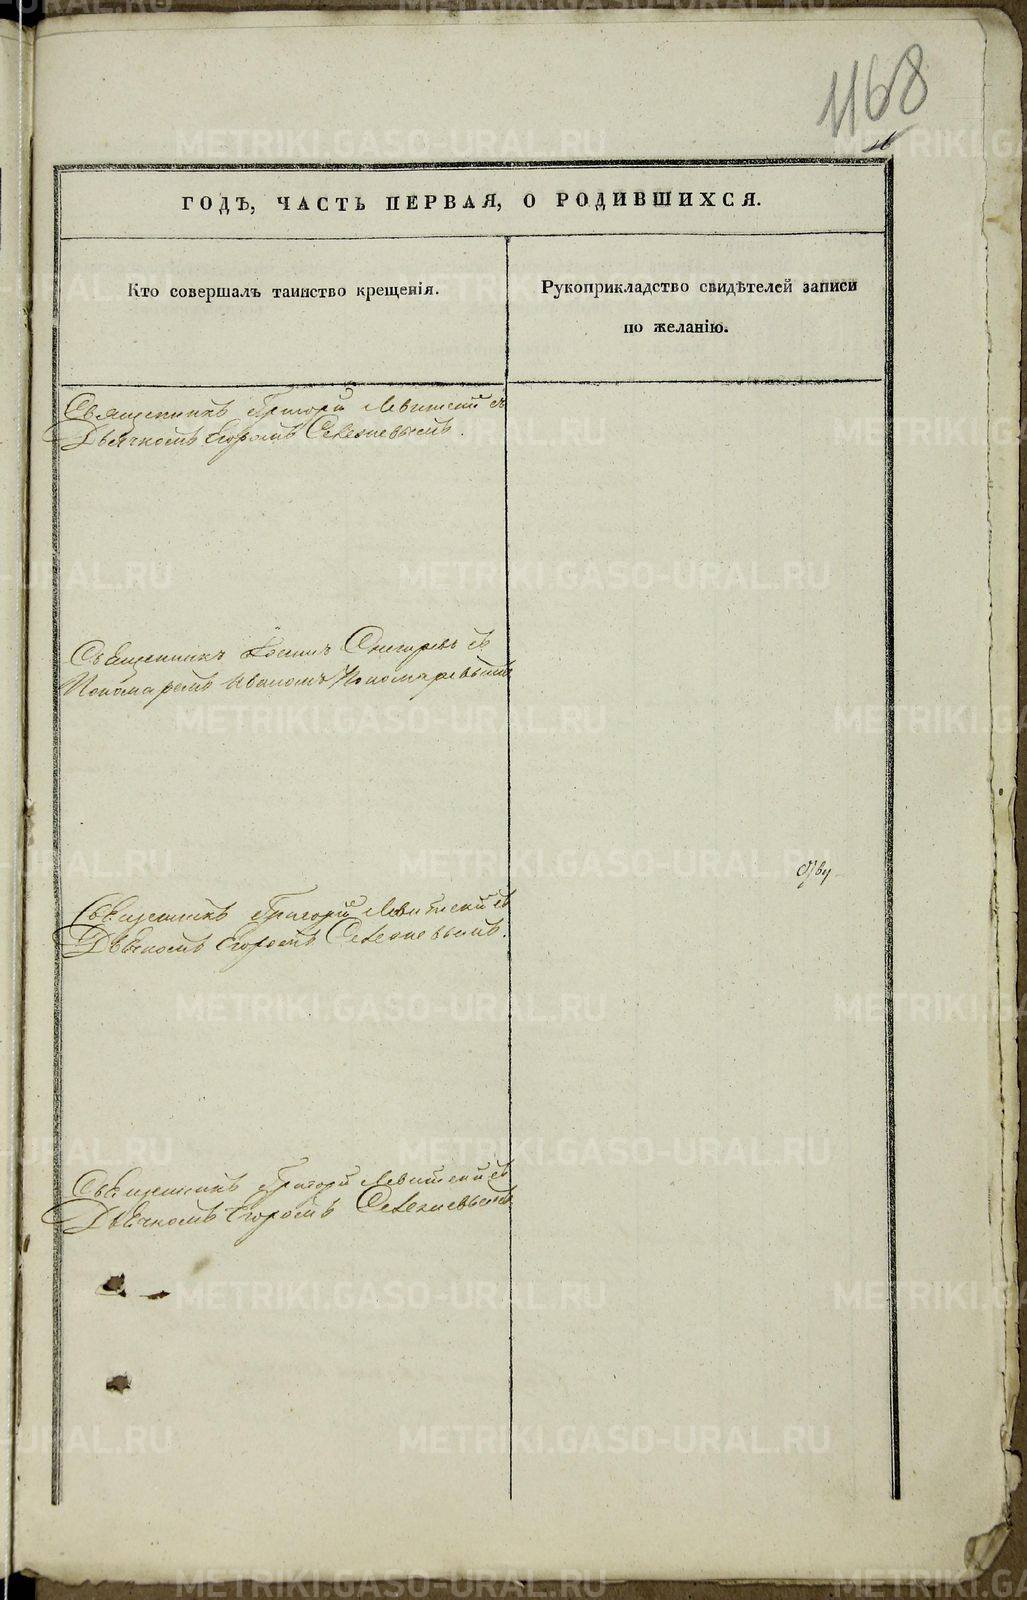 1168
ГОДѢ, ЧАСТЬ ПЕРВАЯ, О РОДИВШИХСЯ.
Кто совершалъ таинство крещенія.
Рукоприкладство свидѣтелей записи
по желанію.
Священникъ Григорій Левитскій съ
Дьячкомъ Егоромъ Селезневымъ.
Священникъ Іоаннъ Снегиревъ съ
Пономаремъ Иваномъ Пономаревымъ
Священникъ Григорій Левитскій съ
Дьячкомъ Егоромъ Селезневымъ.
Священникъ Григорій Левитскій съ
Дьячкомъ Егоромъ Селезневымъ
METRIKI.GASO-URAL.RU